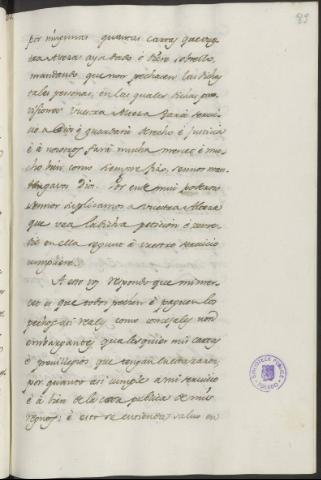 89
por inquanas quantas cartas que vues
tra Alteza aya dado é libre sobrello,
mandando que non pecharen las dichas
tales personas, en las quales dichas pro
visiones vuestra Alteza fará servi
cio a Dios é guardará derecho é justicia
é á nosotros fará mucha merced é mu
cho bien, como siempre fizo, sennor man
tengavos Dios. Por ende mui poderoso
sennor suplicamos a vuestra Alteza
que vea la dicha peticion é provea
en ella segunt á vuestro servicio
cumpliere.
A esto vos respondo que mi mer
ced es que todos pechen é paguen los
pechos asi reales como concejales non
embargante qualesquier mis cartas
é previllegios que tengan en esta razon,
por quanto asi cumple a mi servicio
é á bien de la cosa publica de mis
regnos; é esto se entienda salvo en
BIBLIOTECA PUBLICA
TOLEDO